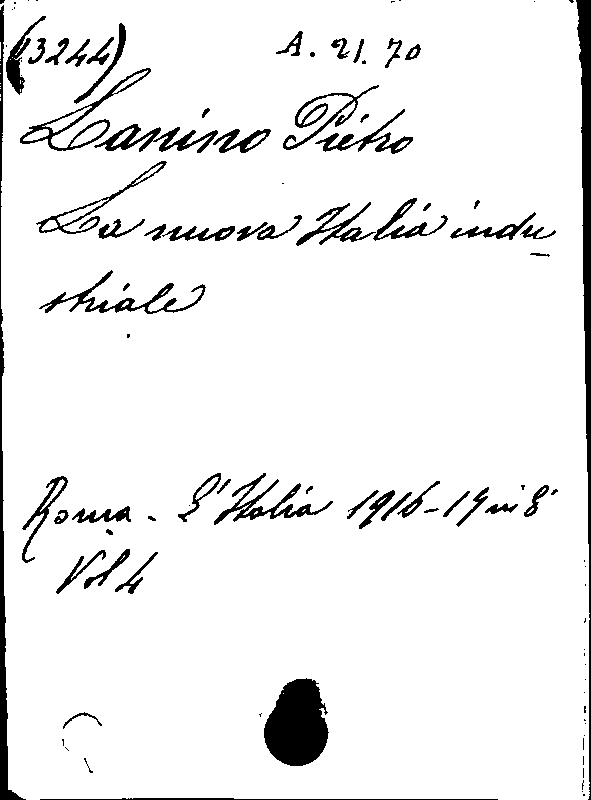 (13244) A. 21. 70
Lanino Pietro
La nuova Italia indu_
striale
Roma - L'Italia 1916-19 in 8°
Vol 4